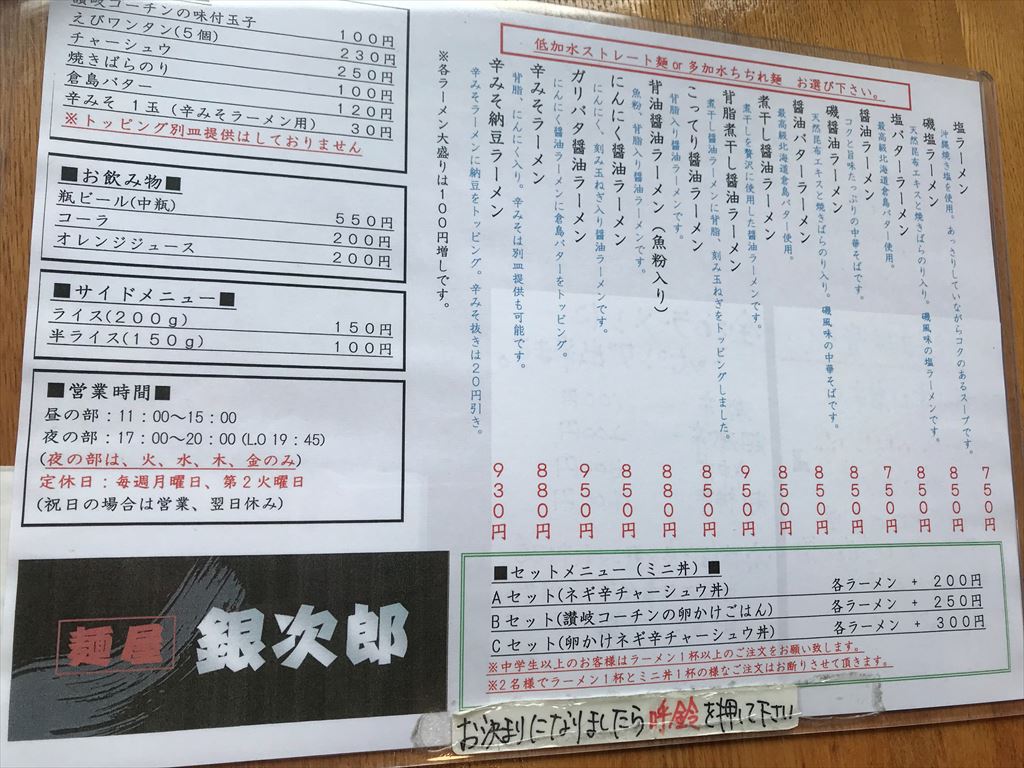 讃岐コーチンの味付玉子 100円
えびワンタン(5個) 230円
チャーシュウ 250円
焼きばらのり 100円
倉島バター 120円
辛みそ 1玉 (辛みそラーメン用) 30円
※トッピング別皿提供はしておりません
■お飲み物■
瓶ビール(中瓶) 550円
コーラ 200円
オレンジジュース 200円
■サイドメニュー■
ライス(200g) 150円
半ライス(150g) 100円
■営業時間■
昼の部:11:00～15:00
夜の部:17:00～20:00(L.O 19:45)
(夜の部は、火、水、木、金のみ)
定休日:毎週月曜日、第2火曜日
(祝日の場合は営業、翌日休み)
麺屋 銀次郎
低加水ストレート麺 or 多加水ちぢれ麺 お選び下さい。
塩ラーメン 750円
沖縄焼き塩を使用。あっさりしていながらコクのあるスープです。
磯塩ラーメン 850円
天然昆布エキスと焼きばらのり入り。磯風味の塩ラーメンです。
塩バターラーメン 850円
最高級北海道倉島バター使用。
醤油ラーメン 750円
コクと旨味たっぷりの中華そばです。
磯醤油ラーメン 850円
天然昆布エキスと焼きばらのり入り。磯風味の中華そばです。
醤油バターラーメン 850円
最高級北海道倉島バター使用。
煮干し醤油ラーメン 850円
煮干しを贅沢に使用した醤油ラーメンです。
背脂煮干し醤油ラーメン 950円
煮干し醤油ラーメンに背脂、刻み玉ねぎをトッピングしました。
こってり醤油ラーメン 850円
背脂入り醤油ラーメンです。
背油醤油ラーメン(魚粉入り) 880円
魚粉、背脂入り醤油ラーメンです。
にんにく醤油ラーメン 850円
にんにく、刻み玉ねぎ入り醤油ラーメンです。
ガリバタ醤油ラーメン 950円
にんにく醤油ラーメンに倉島バターをトッピング。
辛みそラーメン 880円
背脂、にんにく入り。辛みそは別皿提供も可能です。
辛みそ納豆ラーメン 930円
辛みそラーメンに納豆をトッピング。辛みそ抜きは20円引き。
※各ラーメン大盛りは100円増しです。
■セットメニュー(ミニ丼)■
Aセット(ネギ辛チャーシュウ丼) 各ラーメン + 200円
Bセット(讃岐コーチンの卵かけごはん) 各ラーメン + 250円
Cセット(卵かけネギ辛チャーシュウ丼) 各ラーメン + 300円
※中学生以上のお客様はラーメン1杯以上のご注文をお願い致します。
※2名様でラーメン1杯とミニ丼1杯の様なご注文はお断りさせて頂きます。
お決まりになりましたら呼鈴を押して下さい